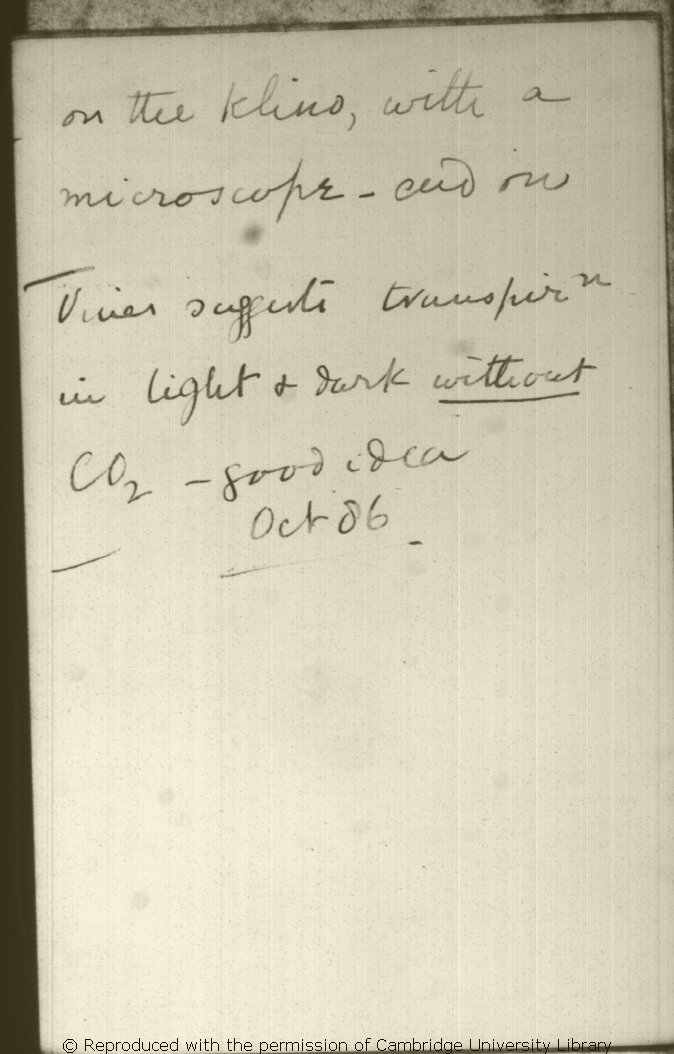 on the Klino, with a
microscope - and in
Vines suggests transpirn
in light & dark without
CO2 - good idea
Oct 86
© Reproduced with the permission of Cambridge University Library